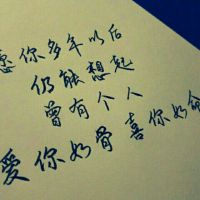 愿你多年以后
仍能想起
曾有个人
爱你如骨 喜你如命